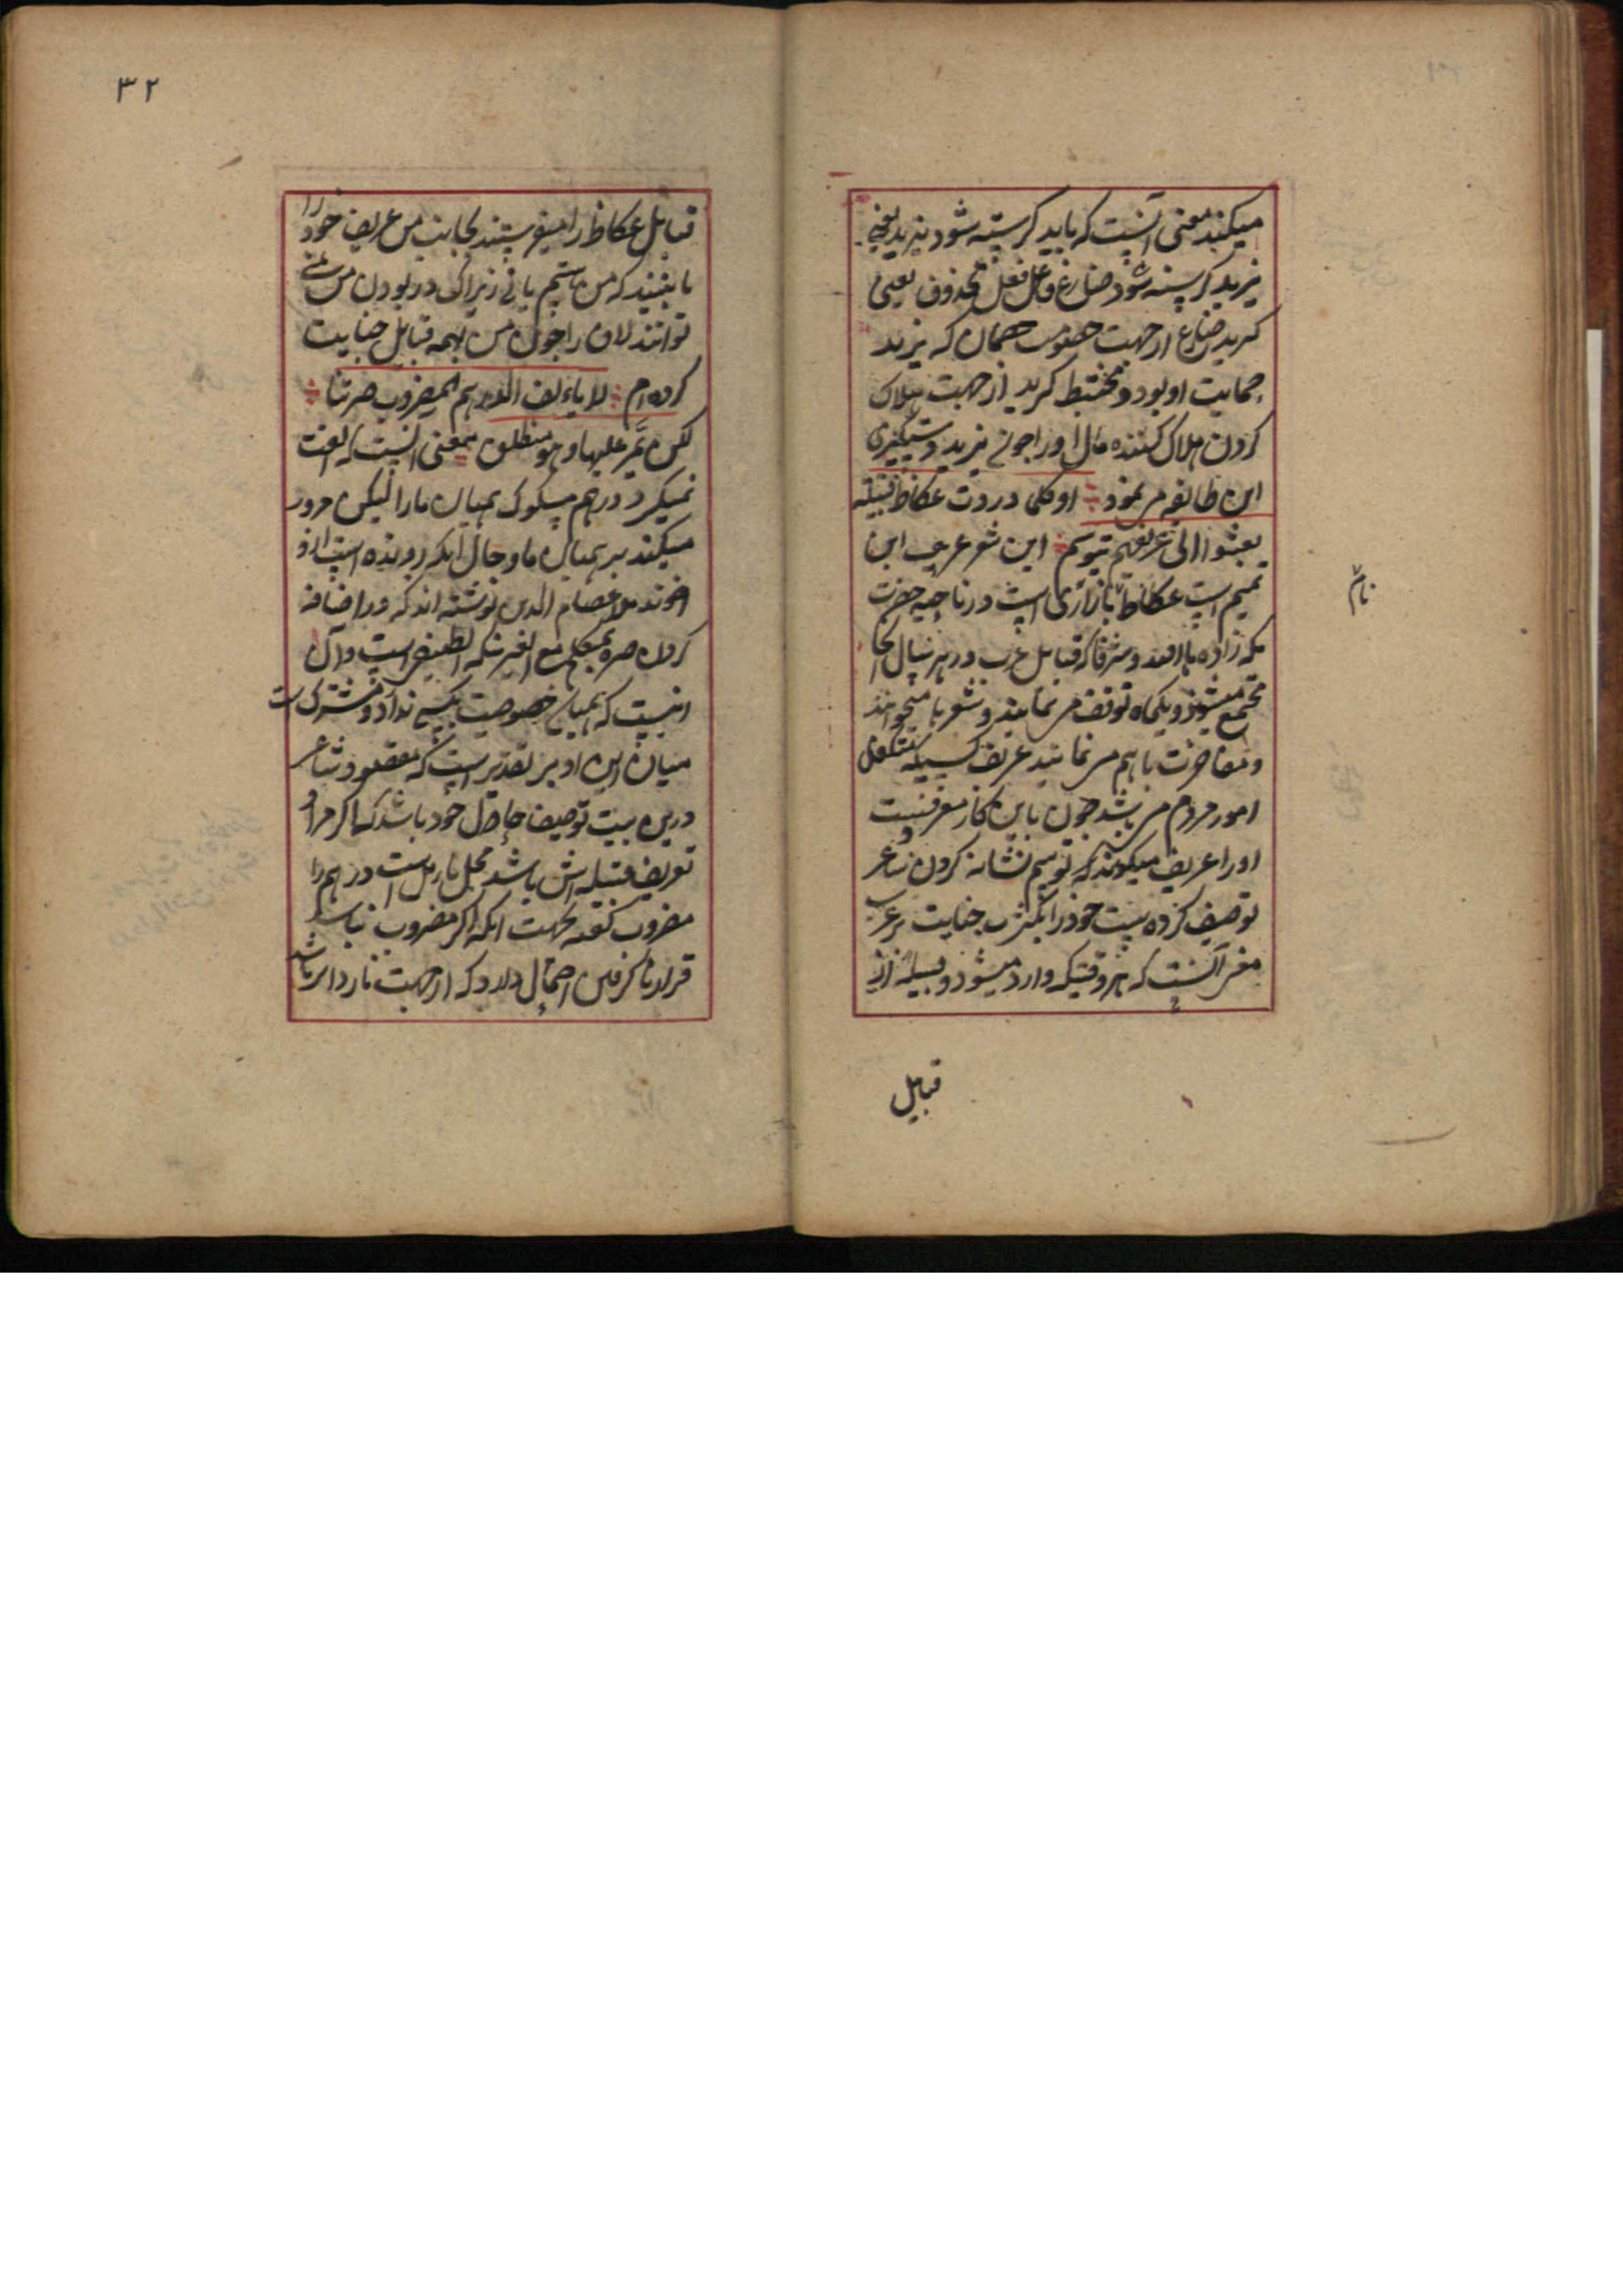 میکند معنی آنست که باید کریسته شود یزید یعنی
یزید کریسته شود ضارع فاعل فعل محذوف یعنی
کرید ضارع از جهت خصومت همان که یزید
حمایت او بود و مختبط کرید از جهت هلاک
کردن هلاک کننده مال او را چون یزید دستگیری
این طایفه مر نمود او کلما وردت عکاظ قبیلة
بعثوا الی عریفهم یتوسم این شعر عریف ابن
تمیم است عکاظ بازاری است در ناحیه حضرت
مکه زاده ها الله و شرفا که قبایل عرب در هر سال آنجا
مجتمع میشوند و یکماه توقف مر نمایند و شعرها میخوانند
و مفاخرت با هم مر نمایند عریف کسیکه متکفل
امور مردم مر باشد چون باین کار معرفست
او را عریف میکویند که توسم نشانه کردن شاعر
توصیف کرده است خود را بکثرت جنایت بر عرب
معنی آنست که هر وقتیکه وارد میشود و قبیله از
قبایل
نام
۳۲
قبایل عکاظ را میفرستند بجانب من عریف خود را
تا ببینند که من هستم یا نی زیرا که در بودن من نمی
توانند لاف را چون من بهمه قبایل جنایت
کرده ام لا یالف الدرهم المضروب صرتنا
لکن یمر علیها و هو منطلق بمعنی آنست که الفت
نمیکیرد درهم مسکوک همیان ما را لیکن مرور
میکند بر همیان ما و حال آنکه رونده است از او
اخوند ملا عصام الدین نوشته اند که در اضافه
کردن صره بمتکلم مع الغیر نکته لطیفی است و آن
اینست که همیان خصوصیت بکسی ندارد و مشترک است
میان این او بر تقدیر است که مقصود شاعر
درین بیت توصیف حاصل خود باشد که اکر مراد
تعریف قبیله اش باشد محل تامل است درهم را
مضروب کفته بجهت آنکه اکر مضروب نباشد
قرار نا کرفتن احتمال دارد که از جهت ناروایی باشد